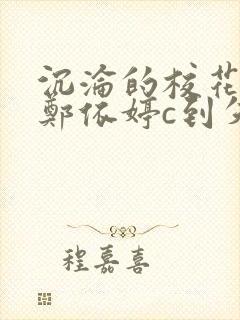 沉淪的校花
鄭依婷c到失
程嘉喜